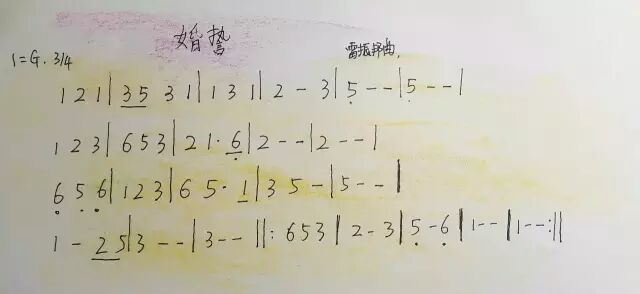 婚誓
雷振邦曲.
1=G. 3/4
1 2 1 | 3 5 3 1 | 1 3 1 | 2 - 3 | 5 - - | 5 - - |
1 2 3 | 6 5 3 | 2 1 · 6 | 2 - - | 2 - - |
6 5 6 | 1 2 3 | 6 5 · 1 | 3 5 - | 5 - - |
1 - 2 5 | 3 - - | 3 - - ‖: 6 5 3 | 2 - 3 | 5 - 6 | 1 - - | 1 - - :‖